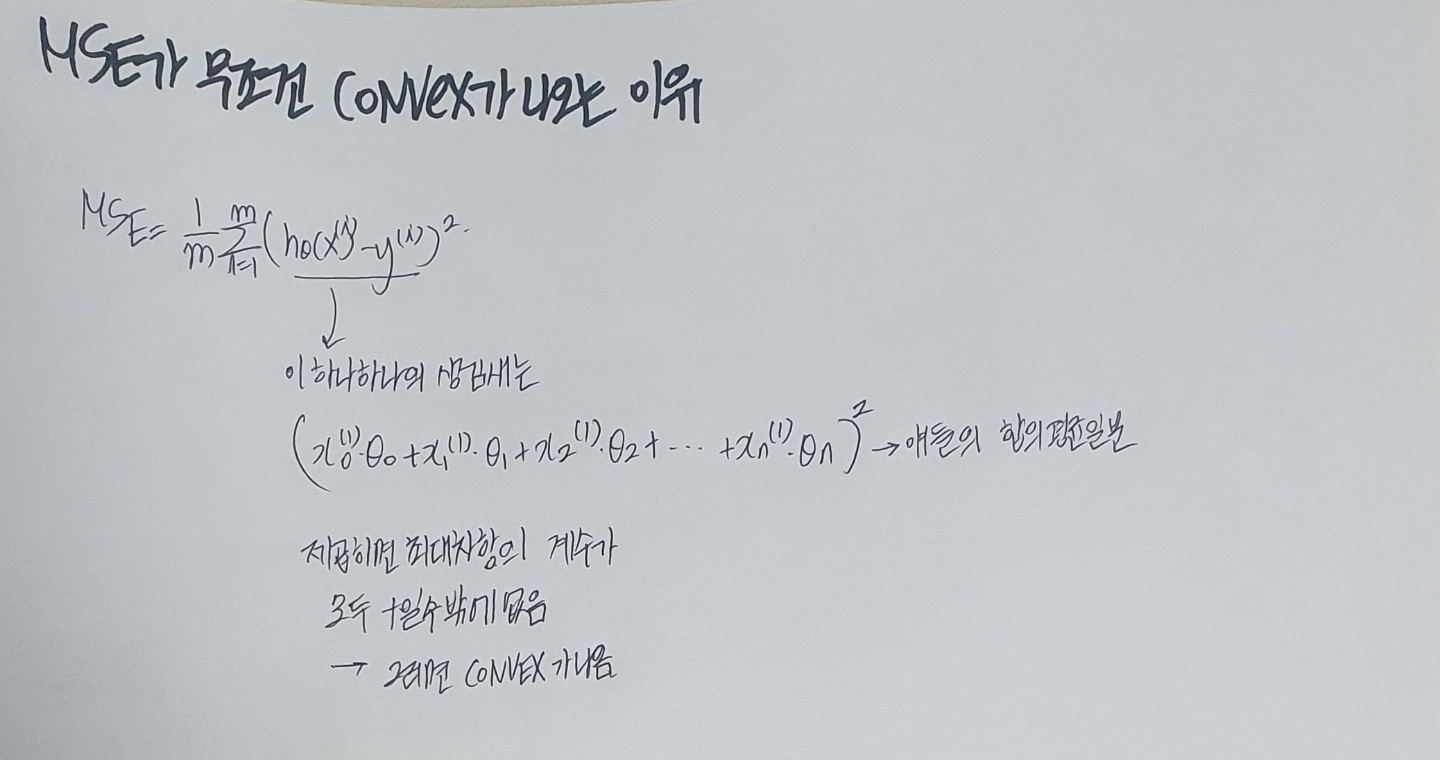 MSE가 무조건 CONVEX가 나오는 이유
MSE = 1/m Σ_{i=1}^{m} (hθ(x⁽ⁱ⁾) - y⁽ⁱ⁾)².
↓
이 하나하나의 생김새는
(x₀⁽¹⁾·θ₀ + x₁⁽¹⁾·θ₁ + x₂⁽¹⁾·θ₂ + ··· + xn⁽¹⁾·θn)² → 얘들의 합의 평균일뿐
제곱하면 최대차항의 계수가
모두 +일수밖에 없음
→ 그러면 CONVEX가 나옴